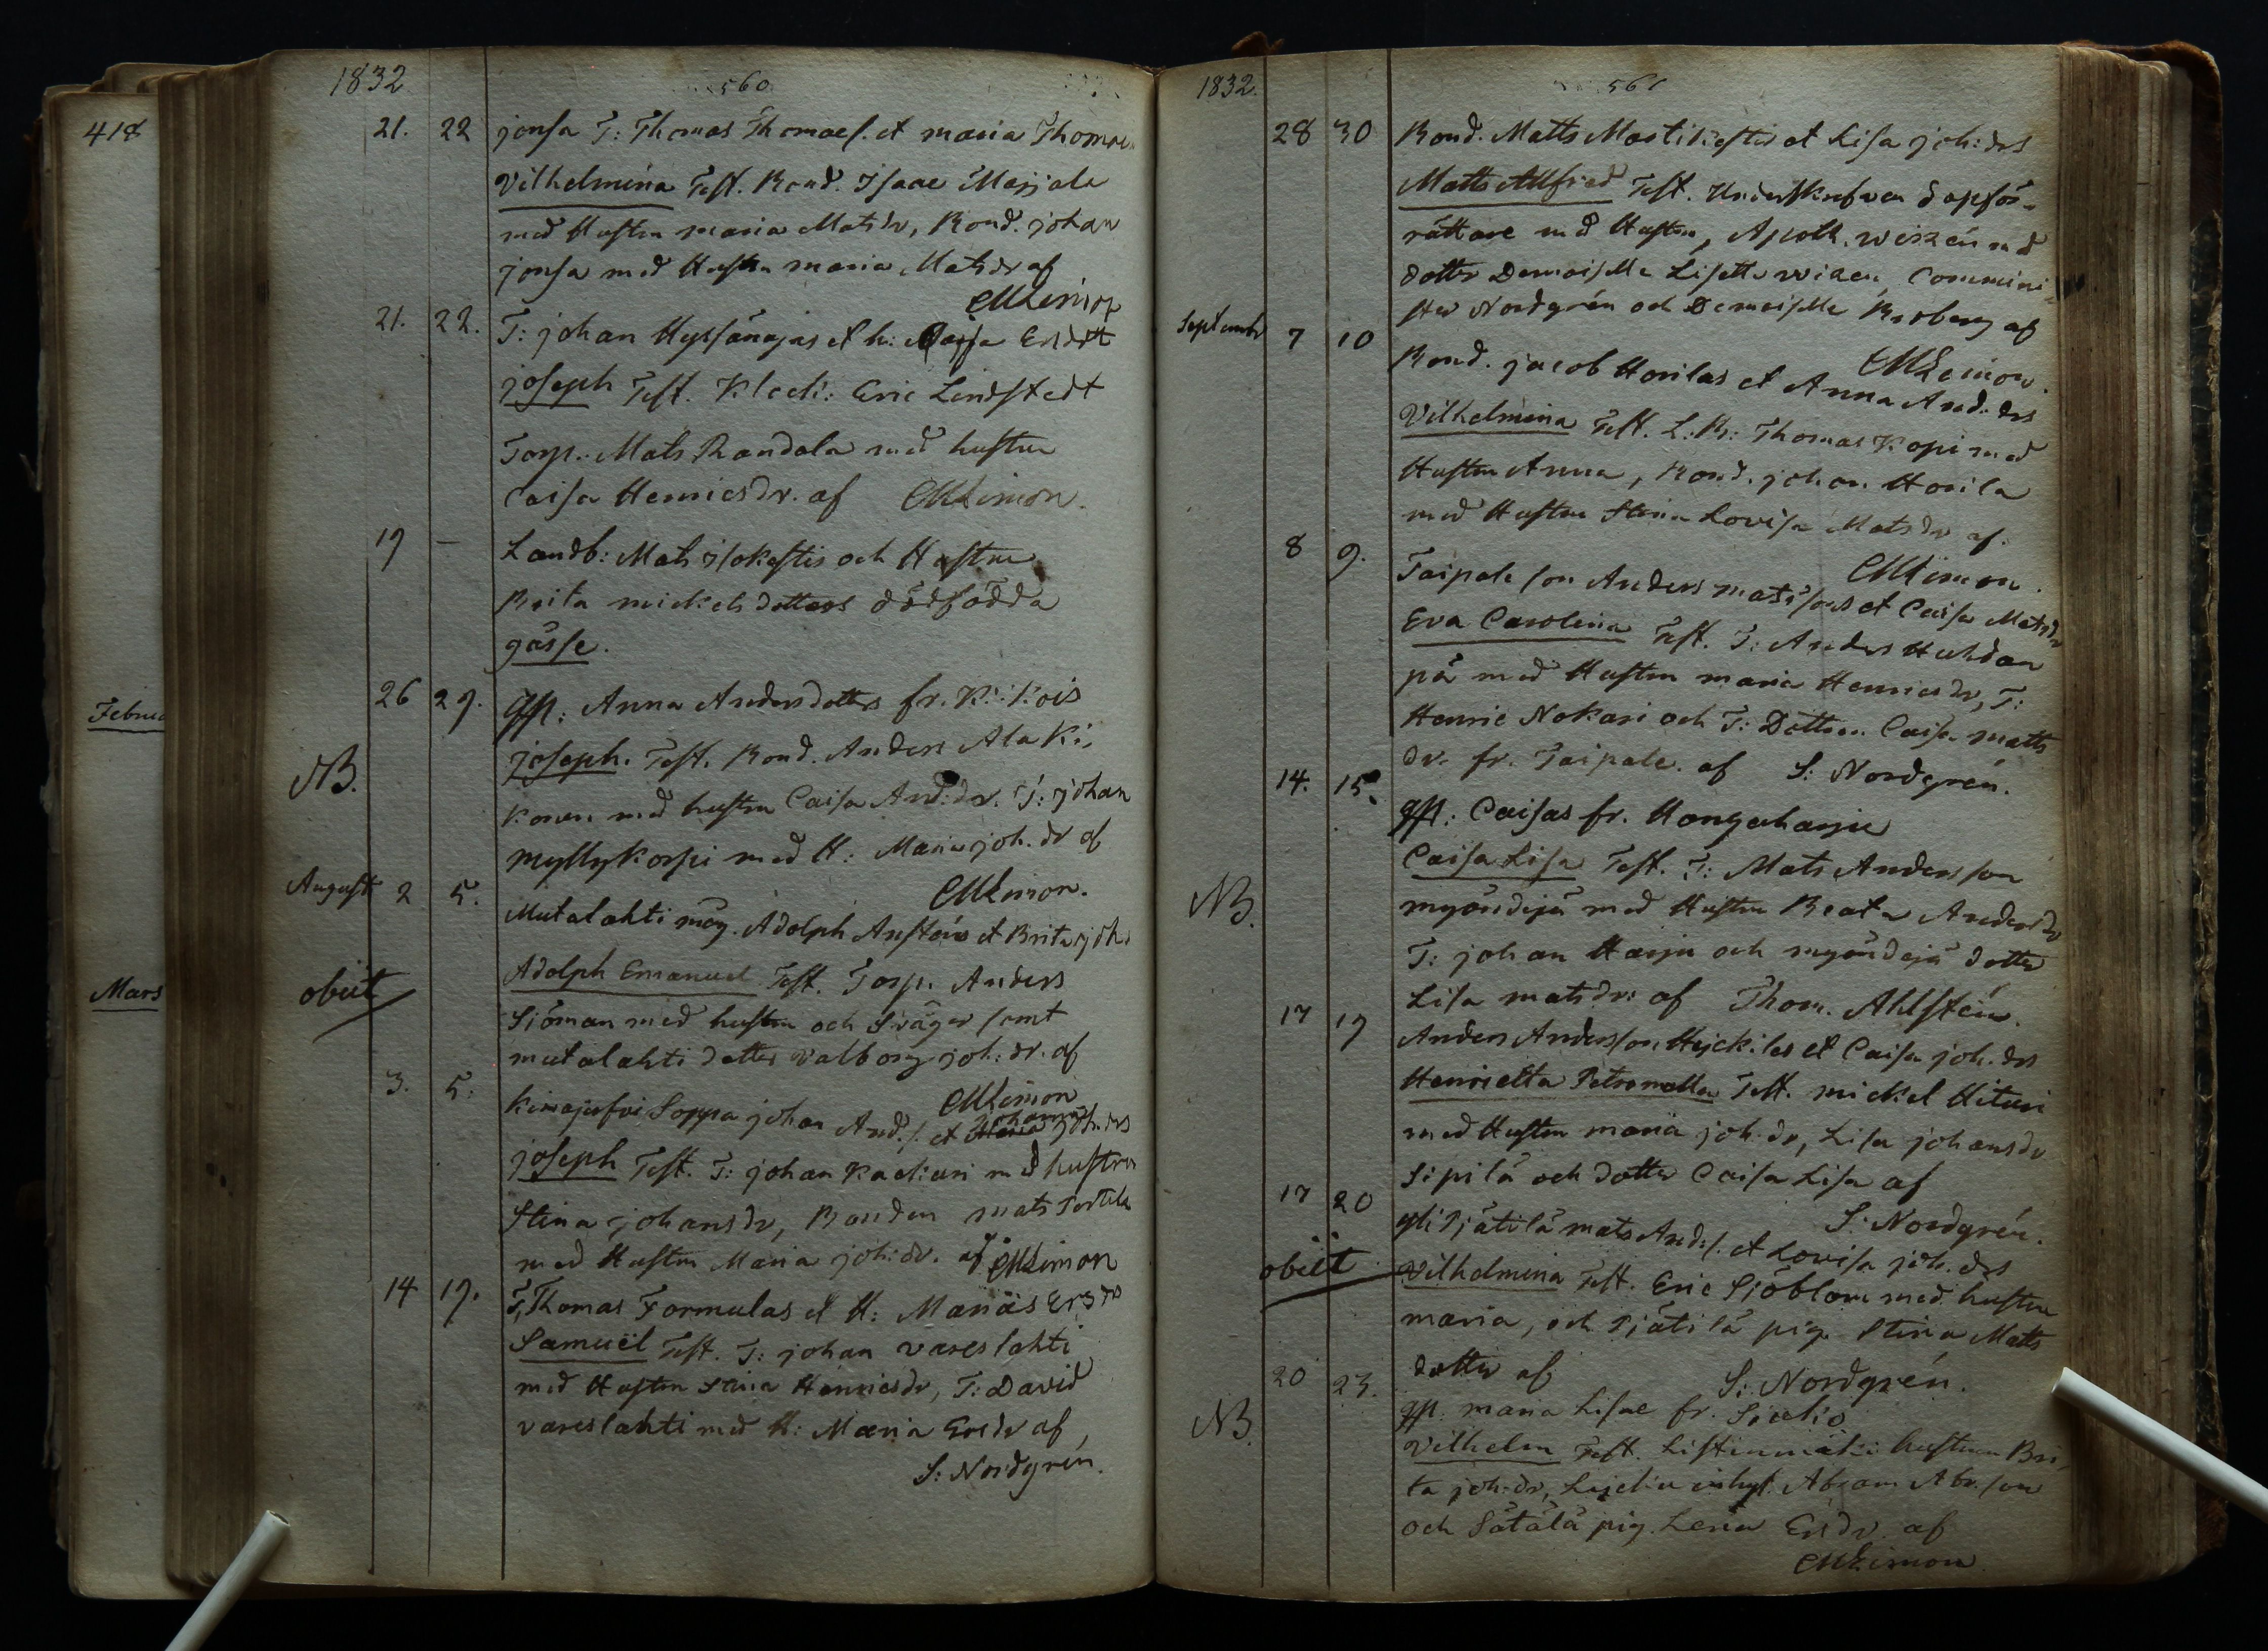 418
Februa
Mars
1832
560
21. 22 jonsa T: Thomas Thomaes. et maria Thomae
Vilhelmina Test. Bond. Isaac Majjala
med Hustru maria Matsdr, Bond. johan
jonsa med Hustru maria Matsdr af
CMLimon
21. 22. T: johan Hyssänojas et h: Cajsa Ersdtt
joseph Test. Klock: Eric Lindstedt
Torp. Mats Randala med hustru
Caisa Henricsdr. af CMLimon.
19 — Landb: Mats Isokestis och Hustru
Brita mickelsdotters dödfödda
gåsse.
26 29. qp: Anna Andersdotters fr. K:Kois
NB. joseph. Test. Bond. Anders Ala Ki,
konen med hustru Caisa And:dr. T: johan
myllykorpi med H: Maria joh. dr af
CMLimon.
August 2 5. Mutalahti måg. Adolph Ahlsténs et Brita joh:
obiit Adolph Emanuel Test. Torp. Anders
Sjöman med hustru och Svåger samt
mutalahti dotter valborg joh: dr. af
CMLimon
3. 5. Soppa johan And:s. et johanna joh:drs
joseph Test. T: johan Kackuri med hustru
Stina johansdr, Bonden mats Torkila
med Hustru Maria joh:dr. af CMLimon
14 19. T, Thomas Formulas et H: Mariäs Ersdr
Samuël Test. T: johan vareslahti
med Hustru Stina Henricsdr, T: David
vareslahti med H: Maria Ersdr af
S: Nordgrén.
1832.
561
28 30 Bond. Matts Martikestis et Lisa joh:drs
Matts Allfred Test. Underskrefven dopför-
rättare med Hustru, Apoth. wizén med
dotter Demoiselle Lisette wizen, Commini-
ster Nordgrén och Demoiselle Broberg af
CMLimon.
Septembr 7 10 Bond. jacob Horilas et Anna And:drs
Vilhelmina Test. L:B: Thomas Kopi med
Hustru Anna, Bond. johan Horila
med Hustru Stina Lovisa Matsdr af.
CMLimon.
8 9. Taipale son Anders matssons et Caisa Matsdr
Eva Carolina Test. T: Anders Huhdan
pä med Hustru maria Henricsdr, T:
Henric Nokari och T: Dottren Caisa matts
dr. fr. Taipale. af S: Nordgrén.
14. 15. qp: Caisas fr. Hongaharju
Caisa Lisa Test. T: Mats Andersson
NB. myöndejä med Hustru Beata Andersdr
T: johan Harju och myöndejä dotter
Lisa matsdr: af Thom. Ahlstén.
17 19 Anders Andersson Hejckilas et Caisa joh.drs
Henrietta Petronella Test. mickel Hituri
med Hustru maria joh:dr, Lisa johansdr
Sipilä och dotter Caisa Lisa af
S: Nordgrén.
17 20 yli Pjätilä mats And:s. et Lovisa joh. drs
obiit Vilhelmina Test. Eric Sjöblom med hustru
maria, och Pjätilä pig. Stina Matts
dotter af S: Nordgrén.
20 23. qp. maria Lisae fr.
NB. Vilhelm Test. Listenmäki hustrun Bri,
ta joh:dr, inhys. Abram Abr.son
och Sätälä pig. Lena Ersdr. af
CMLimon